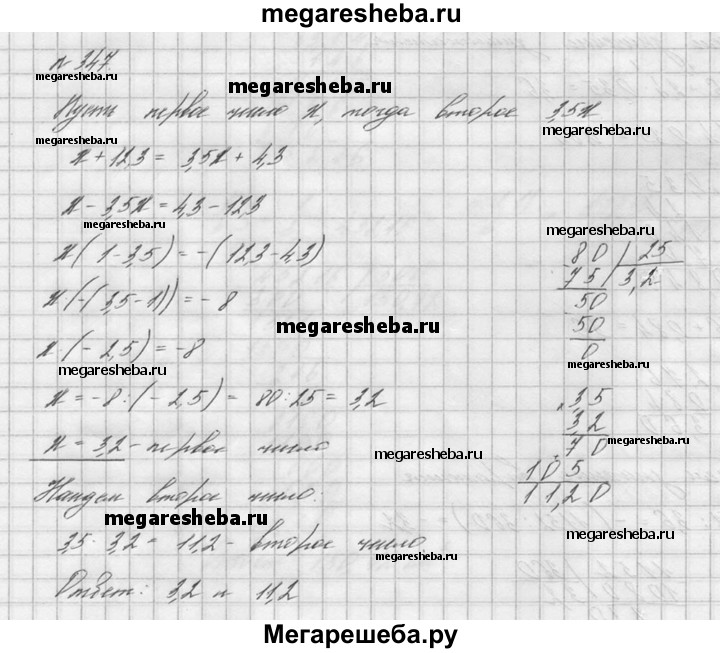 megaresheba.ru
№ 347
megaresheba.ru
megaresheba.ru
Пусть первое число x, тогда второе 3,5x
megaresheba.ru
megaresheba.ru
x + 12,3 = 3,5x + 4,3
x - 3,5x = 4,3 - 12,3
megaresheba.ru
x(1 - 3,5) = -(12,3 - 4,3)
80 | 25
75 | 3,2
50
50
0
x(-(3,5 - 1)) = -8
megaresheba.ru
x(-2,5) = -8
megaresheba.ru
megaresheba.ru
x = -8 : (-2,5) = 80 : 25 = 3,2
3,5
3,2
70
105
11,20
x = 3,2 - первое число
megaresheba.ru
megaresheba.ru
Найдем второе число:
megaresheba.ru
3,5 · 3,2 = 11,2 - второе число
megaresheba.ru
megaresheba.ru
Ответ: 3,2 и 11,2
Мегарешеба.ру